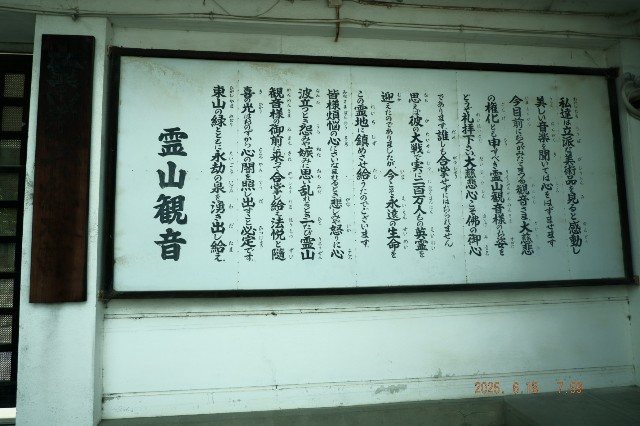 私達は立派な美術品を見ると感動し
美しい音楽を聞いては心をはずませます
今目前にあおぎたてまつる観音さま大慈悲
の権化とも申すべき霊山観音様のお姿を
どうぞ礼拝下さい大慈悲心こそ佛の御心
であります誰しも合掌せずにはおられません
思えば彼の大戦で実に二百万人もの英霊を
迎えたのでありましたが、今こそ永遠の生命を
この霊地に鎮めさせ給うたのでございます
皆様煩悩の心にさいなまれるとき悲しみや怒りに心
波立つとき怨みや嫉みに思い乱れるとき一たび霊山
観音様の御前に来つて合掌し給え法悦と随
喜の光はおのずから心の闇を照し出すこと必定です
東山の緑とともに永劫の泉を湧き出し給え
霊山観音
2025. 6.15 7:09